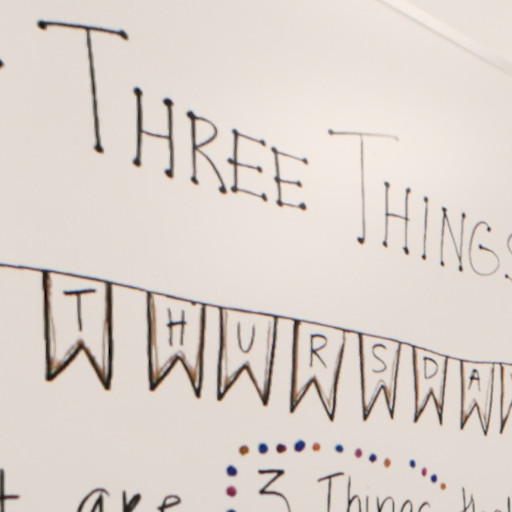 THREE THINGS
THURSDA
are 3 Things